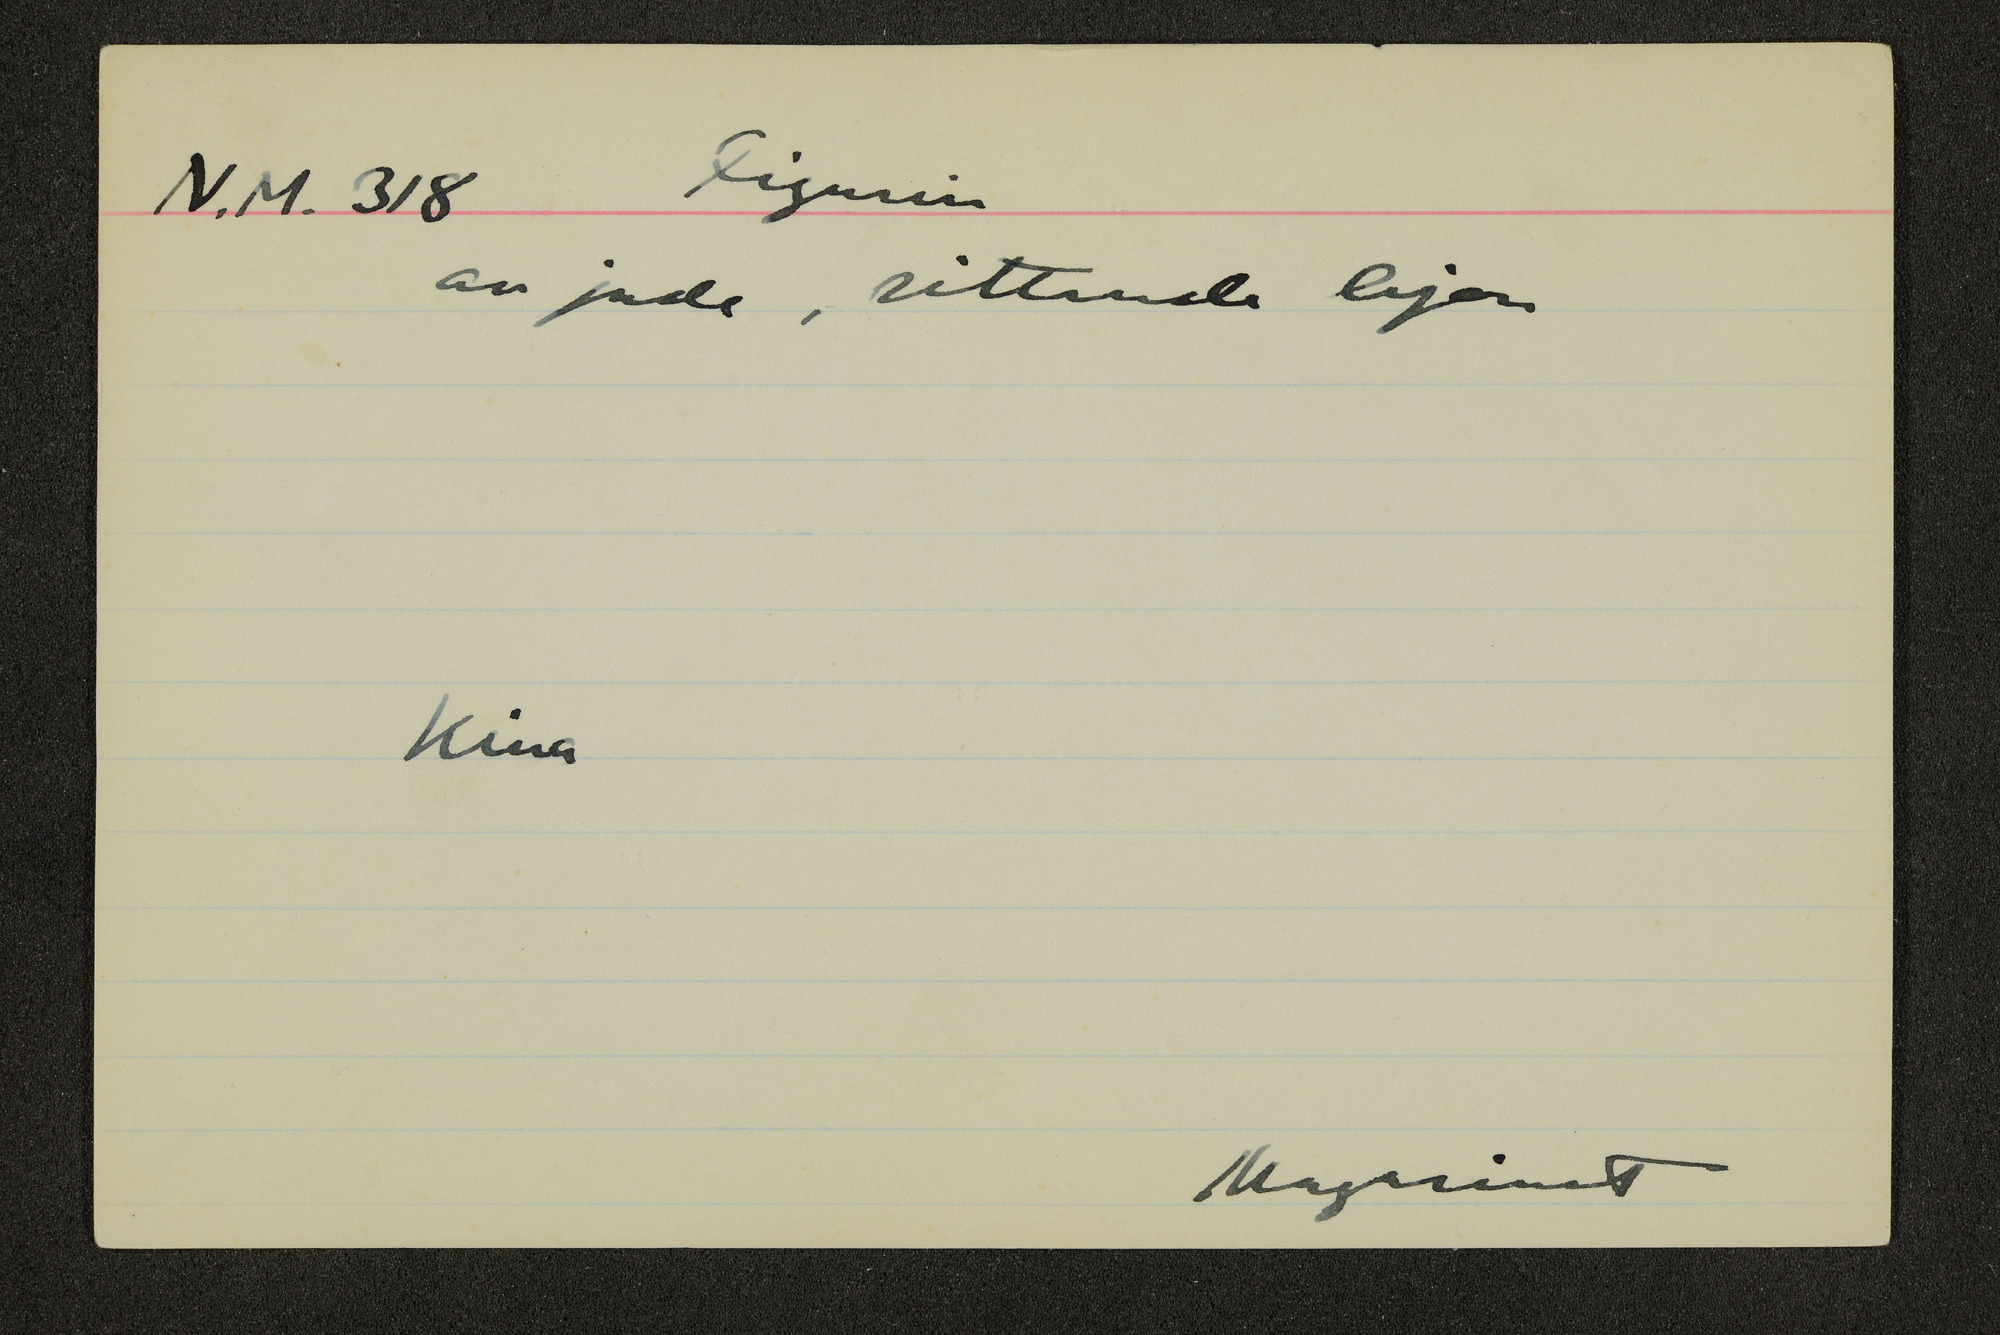 N.M. 318 Figurin
av jade, sittande lejon
Kina
Magasinet